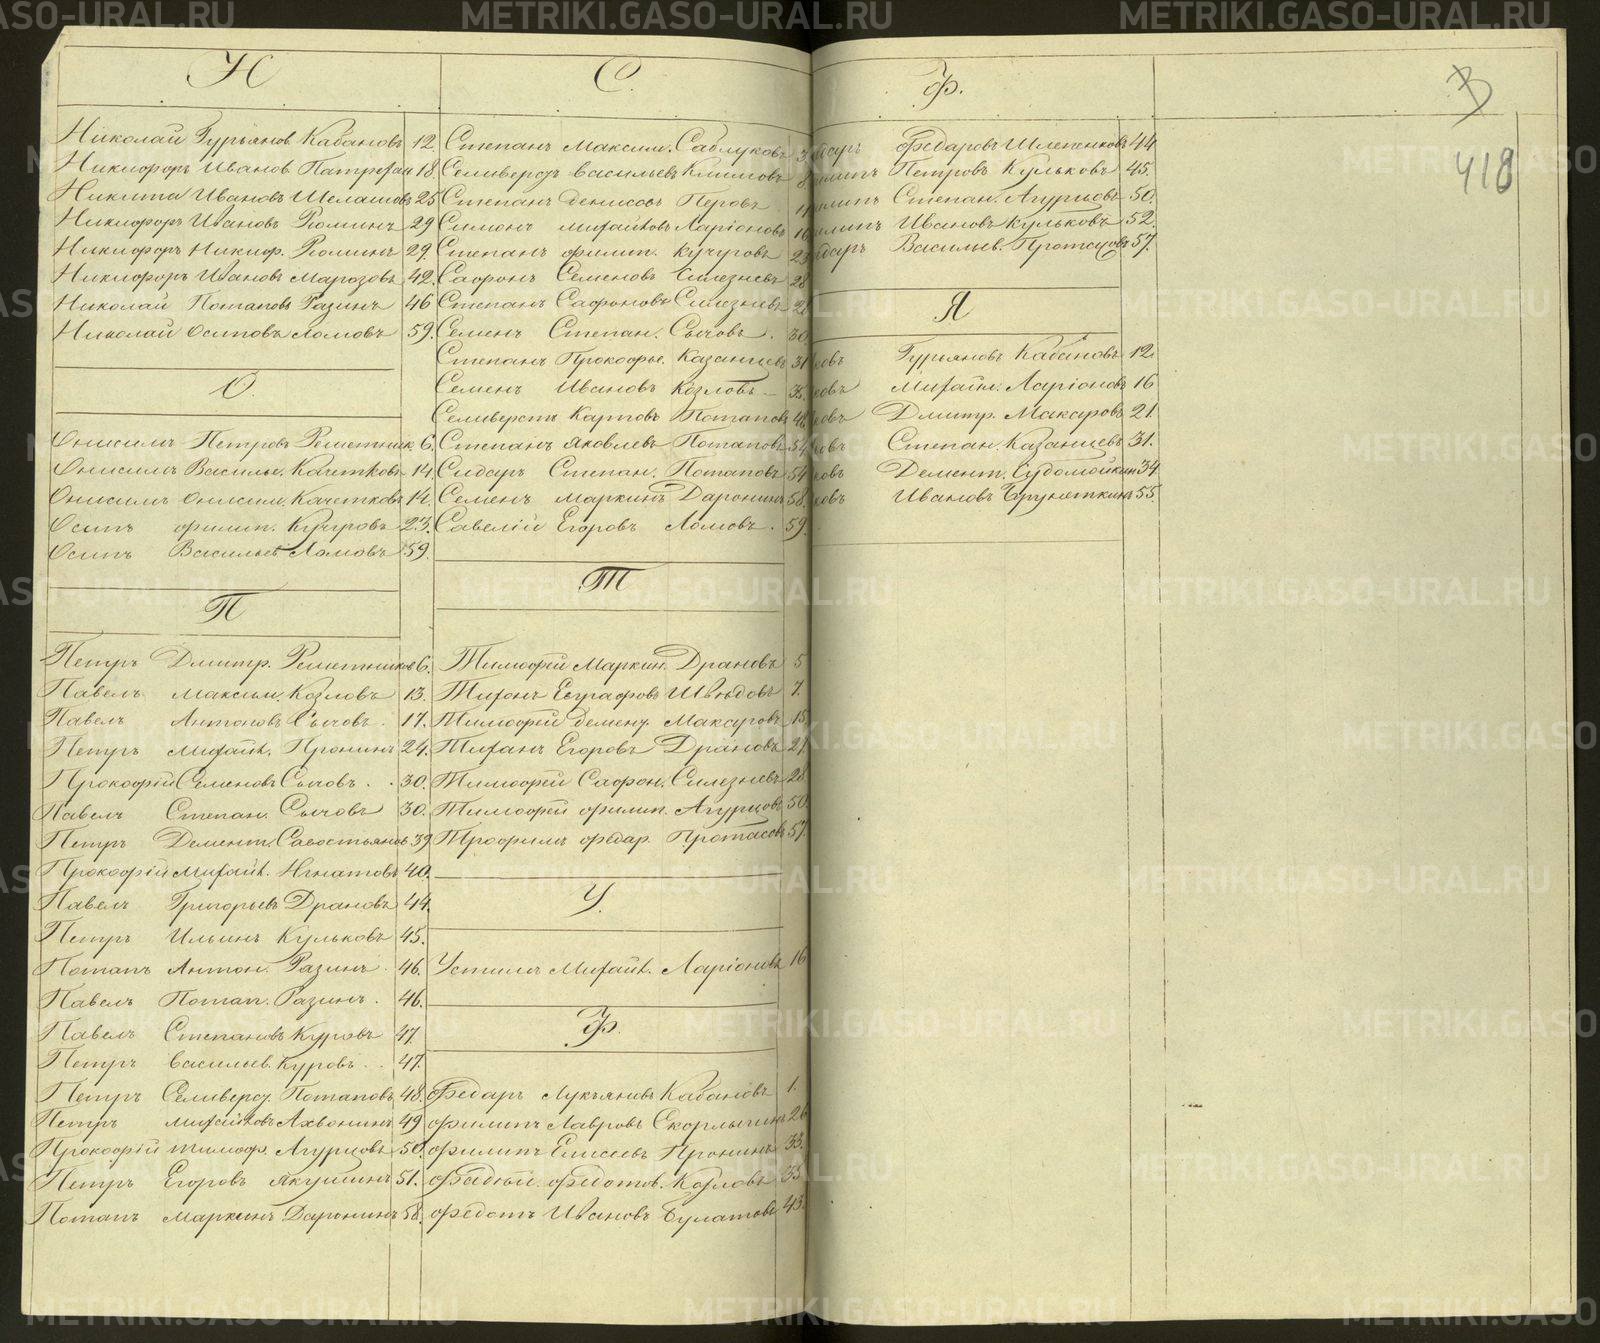 Н
Николай Гурьянов Кабановъ 12
Никифоръ Иванов 18
Никита Ивановъ 25
Никифоръ Ивановъ Рюминъ 29
Никифоръ Никиф. Рюминъ 29.
Никифоръ Ивановъ Марозовъ 42.
Николай Потаповъ Разинъ 46
Николай Осиповъ Ломовъ 59.
О.
Онисимъ Петровъ Решетник. 6.
Онисимъ Василь. Кочетковъ 14.
Онисимъ Онисим. Кочетковъ 14.
Осипъ Филип. Кучуровъ 23.
Осипъ Васильев Ломовъ 59.
П
Петръ Дмитр. Решетников 6.
Павелъ Максим. Козловъ 13.
Павелъ Антоновъ Сычовъ. 17.
Петръ Михайл. Пронинъ 24.
Прокофій Семеновъ Сычовъ. 30.
Павелъ Степан. Сычовъ 30.
Петръ Демент. Савостьянов 39
Прокофій Михайл. Игнатовъ 40.
Павелъ Григорьев Драновъ 44.
Петръ Ильинъ Кульковъ 45.
Потапъ Антон. Разинъ. 46.
Павелъ Потап. Разинъ. 46.
Павелъ Степановъ Куровъ 47.
Петръ Васильев. Куровъ. 47.
Петръ Селиверс. Потаповъ 48.
Петръ Михайловъ Ахвонинъ 49
Прокофій Тимоф. Агурцовъ 50.
Петръ Егоровъ Якушинъ 51.
Потапъ Маркинъ Даронинъ 58.
С.
Степанъ Максим. Саблуковъ 3
Селиверстъ Васильевъ Климовъ 8
Степанъ Денисовъ Перовъ
Симонъ Михайловъ Ларіоновъ 16
Степанъ Филип. Кучуровъ 23
Сафронъ Семеновъ Силезневъ 28
Степанъ Сафоновъ Силезневъ 28
Семенъ Степан. Сычовъ. 30
Степанъ Прокофье. Казанцевъ 31
Семенъ Ивановъ Козловъ 35.
Селиверстъ Карповъ Потаповъ 48
Степанъ Яковлевъ Потаповъ 54
Сидаръ Степан. Потаповъ 54
Семенъ Маркинъ Даронинъ 58.
Савелій Егоровъ Ломовъ. 59
Т
Тимофей Маркин. Драновъ 5
Тихонъ Евграфовъ Шведовъ 7.
Тимофей Демент. Максуровъ 15
Тиханъ Егоровъ Драновъ 27
Тимофей Сафон. Силезневъ 28
Тимофей Филип. Агурцовъ 50
Трофимъ Федар. Протасовъ 57
У.
Устинъ Михайл. Ларіоновъ 16
Ф.
Федаръ Лукъяновъ Кабановъ 1.
Филипъ Лавровъ Скорлыгинъ 26
Филипъ Елисеевъ Пронинъ 33.
Фадюй. Федотов. Козловъ 35
Федотъ Ивановъ Булатовъ 43.
Ф.
Федаровъ Шлепенковъ 44
Петровъ Кульковъ 45.
Степан. Агурцовъ 50.
Ивановъ Кульковъ 52.
Васильев. Протасовъ 57.
Я
Гурьяновъ Кабановъ 12
Михайл. Ларіоновъ 16
Дмитр. Макаровъ 21.
Степан. Казанцевъ 31.
Демент. Судомойкин 34
Ивановъ Бруняткинъ 55.
418
METRIKI.GASO-URAL.RU